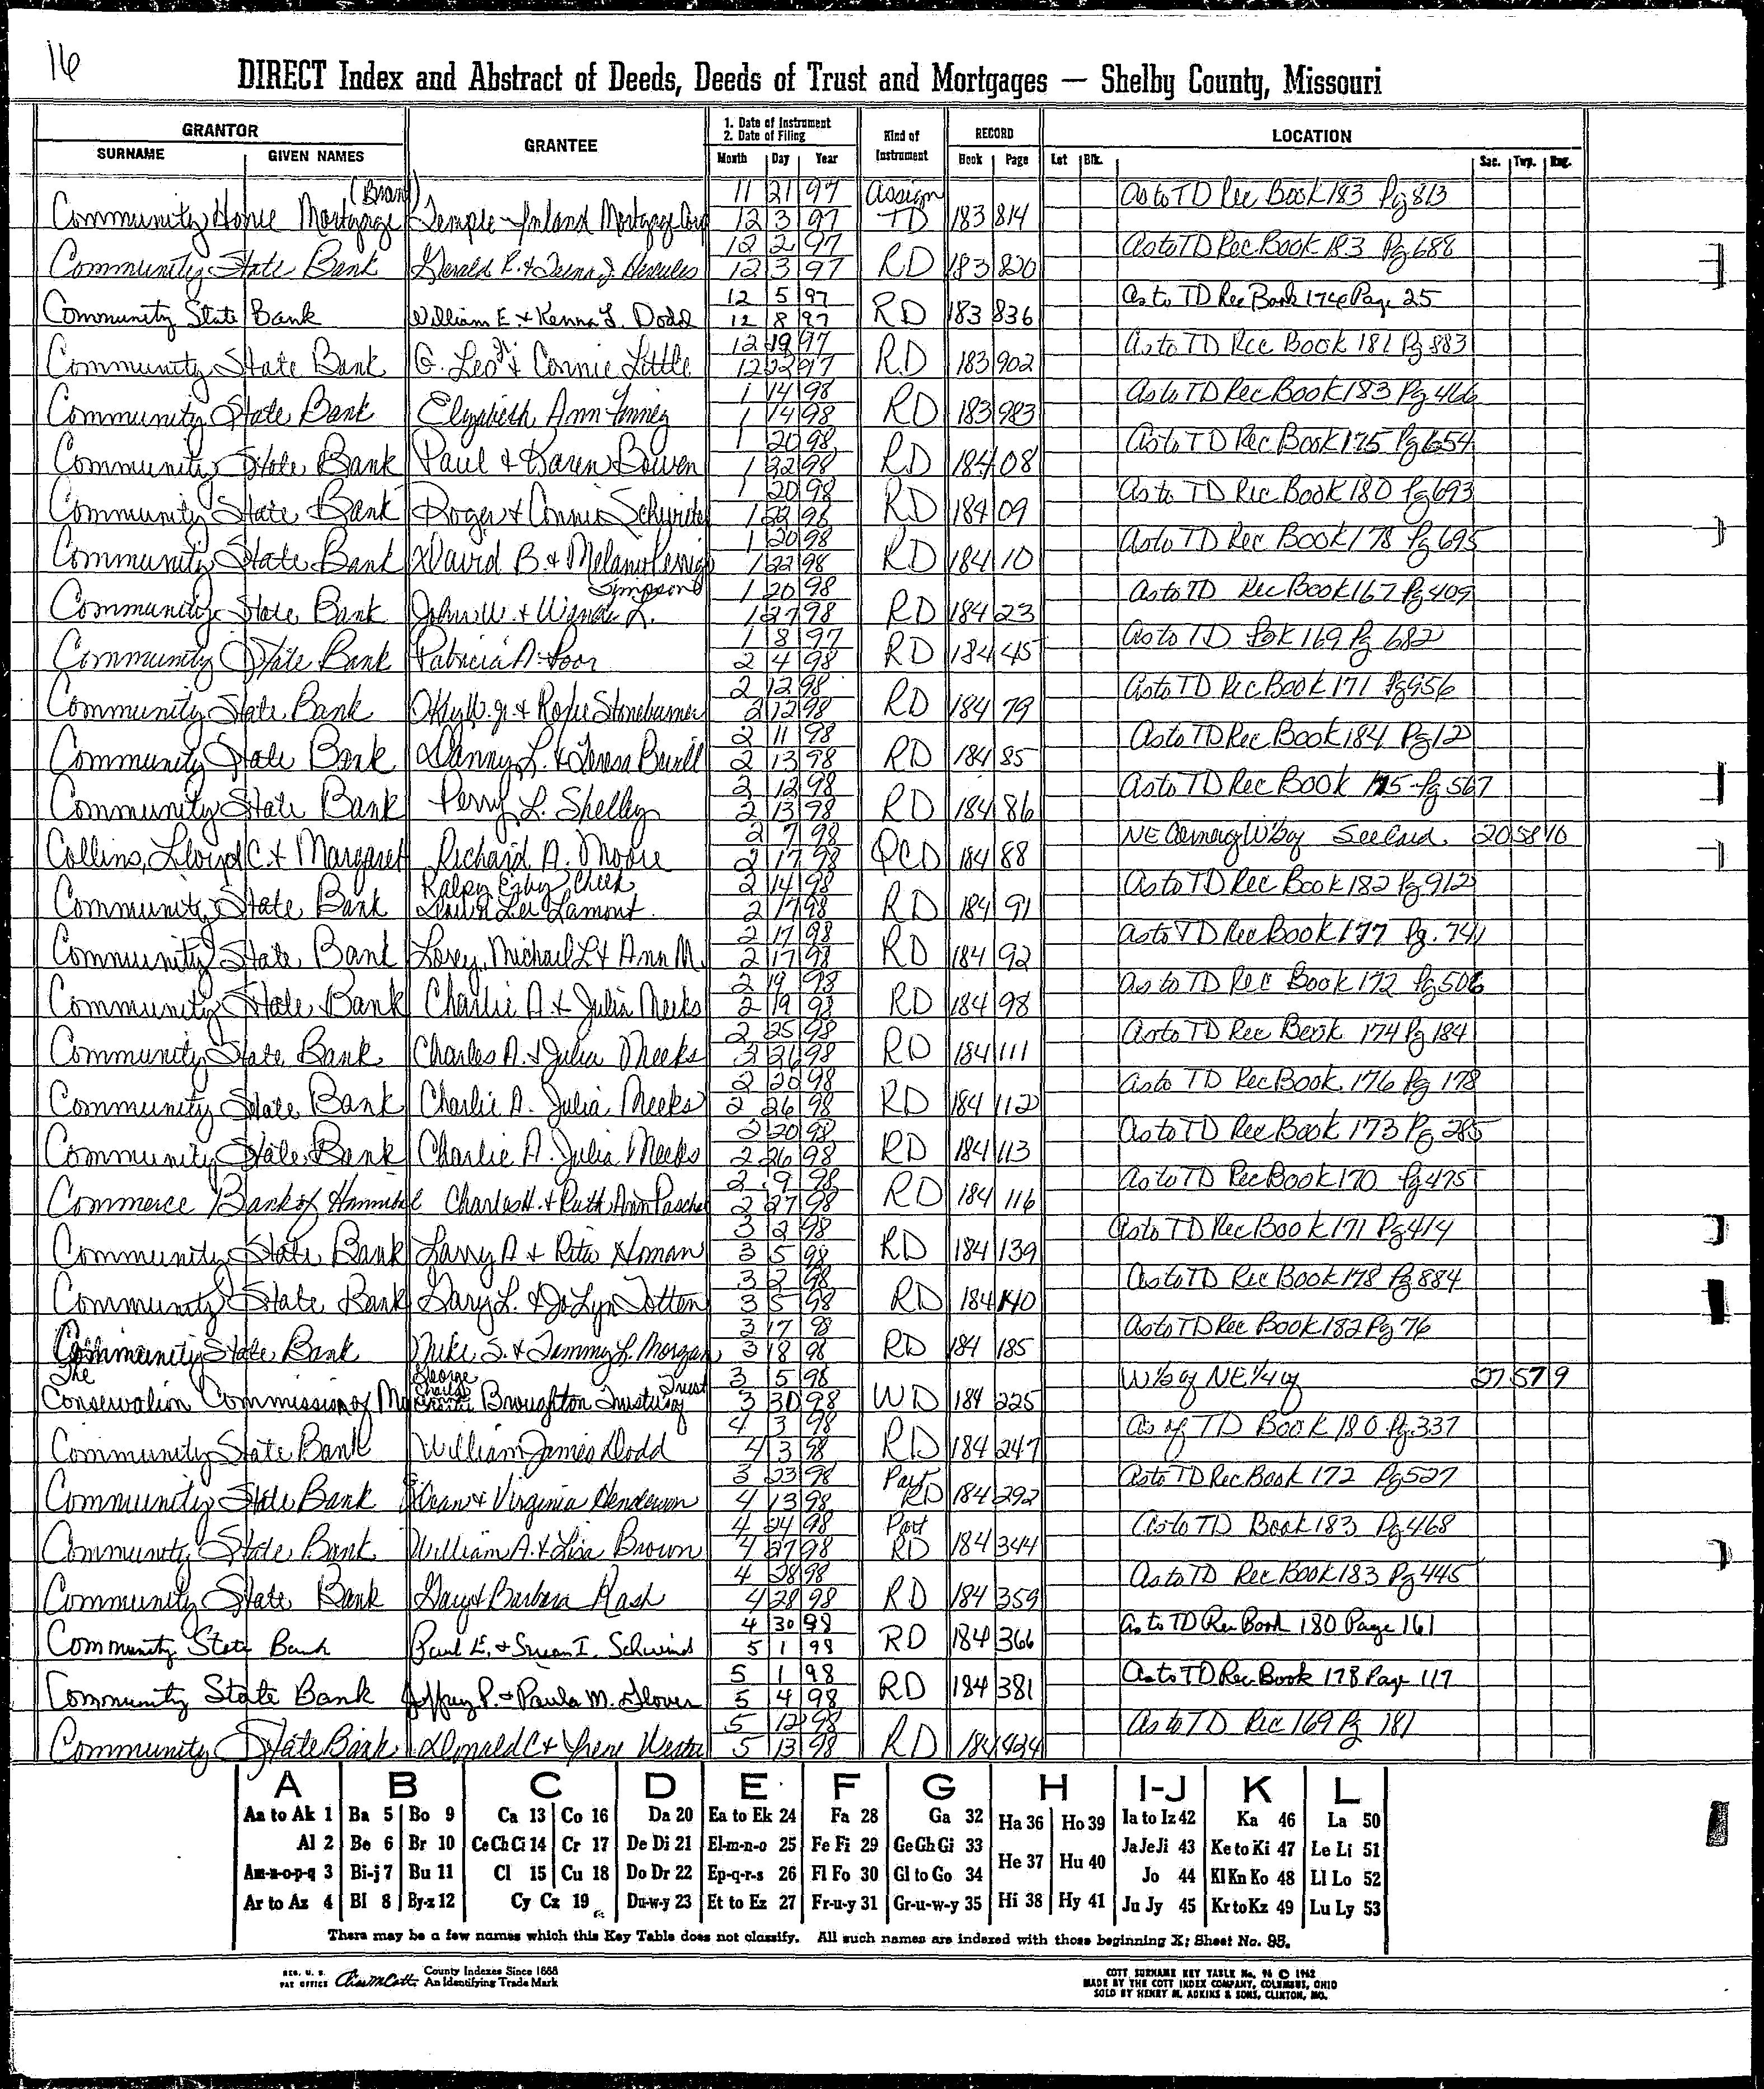 16
DIRECT Index and Abstract of Deeds, Deeds of Trust and Mortgages — Shelby County, Missouri
GRANTOR
SURNAME GIVEN NAMES
GRANTEE
1. Date of Instrument
2. Date of Filing
Month Day Year
Kind of Instrument
RECORD
Book Page
LOCATION
Lot Blk. Sec. Twp. Rng.
11 21 97 Assign As to TD Rec Book 183 Pg 813
Community Home Mortgage Temple-Inland Mortgage Corp 12 3 97 TD 183 814
12 2 97 As to TD Rec Book 183 Pg 688
Community State Bank Gerald R. & Hercules 12 3 97 RD 183 820
12 5 97 As to TD Rec Book 174 Page 25
Community State Bank William E. & Kenna L. Dodd 12 8 97 RD 183 836
12 19 97 As to TD Rec Book 181 Pg 883
Community State Bank G. Leo & Connie Little 12 22 97 RD 183 902
1 14 98 As to TD Rec Book 183 Pg 466
Community State Bank Elizabeth Ann 1 14 98 RD 183 983
1 20 98 As to TD Rec Book 175 Pg 654
Community State Bank Paul & Karen Bowen 1 22 98 RD 184 08
1 20 98 As to TD Rec Book 180 Pg 693
Community State Bank Roger & Connie 1 22 98 RD 184 09
1 20 98 As to TD Rec Book 178 Pg 695
Community State Bank David B. & 1 22 98 RD 184 10
Simpson 1 20 98 As to TD Rec Book 167 Pg 409
Community State Bank John W. & L. 1 27 98 RD 184 23
1 8 97 As to TD Bok 169 Pg 682
Community State Bank Patricia A. Poor 2 4 98 RD 184 45
2 12 98 As to TD Rec Book 171 Pg 956
Community State Bank W. Jr. & Stoneburner 2 12 98 RD 184 79
2 11 98 As to TD Rec Book 184 Pg 12
Community State Bank Danny L. & Teresa 2 13 98 RD 184 85
2 12 98 As to TD Rec Book 175 Pg 567
Community State Bank Perry L. Shelley 2 13 98 RD 184 86
2 7 98 NE Corner of W½ of See Card. 20 58 10
Collins, Lloyd C. & Margaret Richard A. Moore 2 17 98 QCD 184 88
Ralpy Cheek 2 14 98 As to TD Rec Book 182 Pg 912
Community State Bank Lee Lamont. 2 17 98 RD 184 91
2 17 98 As to TD Rec Book 177 Pg. 741
Community State Bank Michael L & Ann M. 2 17 98 RD 184 92
2 19 98 As to TD Rec Book 172 Pg 506
Community State Bank Charlie A. & Julia Meeks 2 19 98 RD 184 98
2 25 98 As to TD Rec Book 174 Pg 184
Community State Bank Charles A. & Julia Meeks 2 26 98 RD 184 111
2 20 98 As to TD Rec Book 176 Pg 178
Community State Bank Charlie A. Julia Meeks 2 26 98 RD 184 112
2 20 98 As to TD Rec Book 173 Pg 285
Community State Bank Charlie A. Julia Meeks 2 26 98 RD 184 113
2 9 98 As to TD Rec Book 170 Pg 475
Commerce Bank of Hannibal Charles H. & Ruth Ann 2 27 98 RD 184 116
3 2 98 As to TD Rec Book 171 Pg 414
Community State Bank Larry A & Rita Homan 3 5 98 RD 184 139
3 2 98 As to TD Rec Book 178 Pg 884
Community State Bank Gary L. & JoLyn Totten 3 5 98 RD 184 140
3 17 98 As to TD Rec Book 182 Pg 76
Community State Bank Mike S. & Tammy L. Morgan 3 18 98 RD 184 185
The George Trust 3 5 98 W½ of NE¼ of 27 57 9
Conservation Commission of Mo Charles Broughton Trustee of 3 30 98 WD 184 225
4 3 98 As of TD Book 180 Pg. 337
Community State Bank William James Dodd 4 3 98 RD 184 247
3 23 98 Part As to TD Rec Book 172 Pg 527
Community State Bank & Virginia Henderson 4 13 98 RD 184 292
4 24 98 Part As to TD Book 183 Pg 468
Community State Bank William A. & Lisa Brown 4 27 98 RD 184 344
4 28 98 As to TD Rec Book 183 Pg 445
Community State Bank Gary & Barbara Rash 4 28 98 RD 184 359
4 30 98 As to TD Rec Book 180 Page 161
Community State Bank Paul E. & Susan I. Schwind 5 1 98 RD 184 366
5 1 98 As to TD Rec Book 178 Page 117
Community State Bank Jeffrey P. & Paula M. Glover 5 4 98 RD 184 381
5 12 98 As to TD Rec 169 Pg 181
Community State Bank Donald C & Irene 5 13 98 RD 184 424
A B C D E F G H I-J K L
Aa to Ak 1 Ba 5 Bo 9 Ca 13 Co 16 Da 20 Ea to Ek 24 Fa 28 Ga 32 Ha 36 Ho 39 Ia to Iz 42 Ka 46 La 50
Al 2 Be 6 Br 10 Ce Ch Ci 14 Cr 17 De Di 21 El-m-n-o 25 Fe Fi 29 Ge Gh Gi 33 He 37 Hu 40 Ja Je Ji 43 Ke to Ki 47 Le Li 51
Am-n-o-p-q 3 Bi-j 7 Bu 11 Cl 15 Cu 18 Do Dr 22 Ep-q-r-s 26 Fl Fo 30 Gl to Go 34 Jo 44 Kl Kn Ko 48 Ll Lo 52
Ar to Az 4 Bl 8 By-z 12 Cy Cz 19 Du-w-y 23 Et to Ez 27 Fr-u-y 31 Gr-u-w-y 35 Hi 38 Hy 41 Ju Jy 45 Kr to Kz 49 Lu Ly 53
There may be a few names which this Key Table does not classify. All such names are indexed with those beginning X; Sheet No. 95.
REG. U. S. PAT OFFICE County Indexes Since 1888 An Identifying Trade Mark
COTT SURNAME KEY TABLE No. 96 © 1962
MADE BY THE COTT INDEX COMPANY, COLUMBUS, OHIO
SOLD BY HENRY M. ADKINS & SONS, CLINTON, MO.